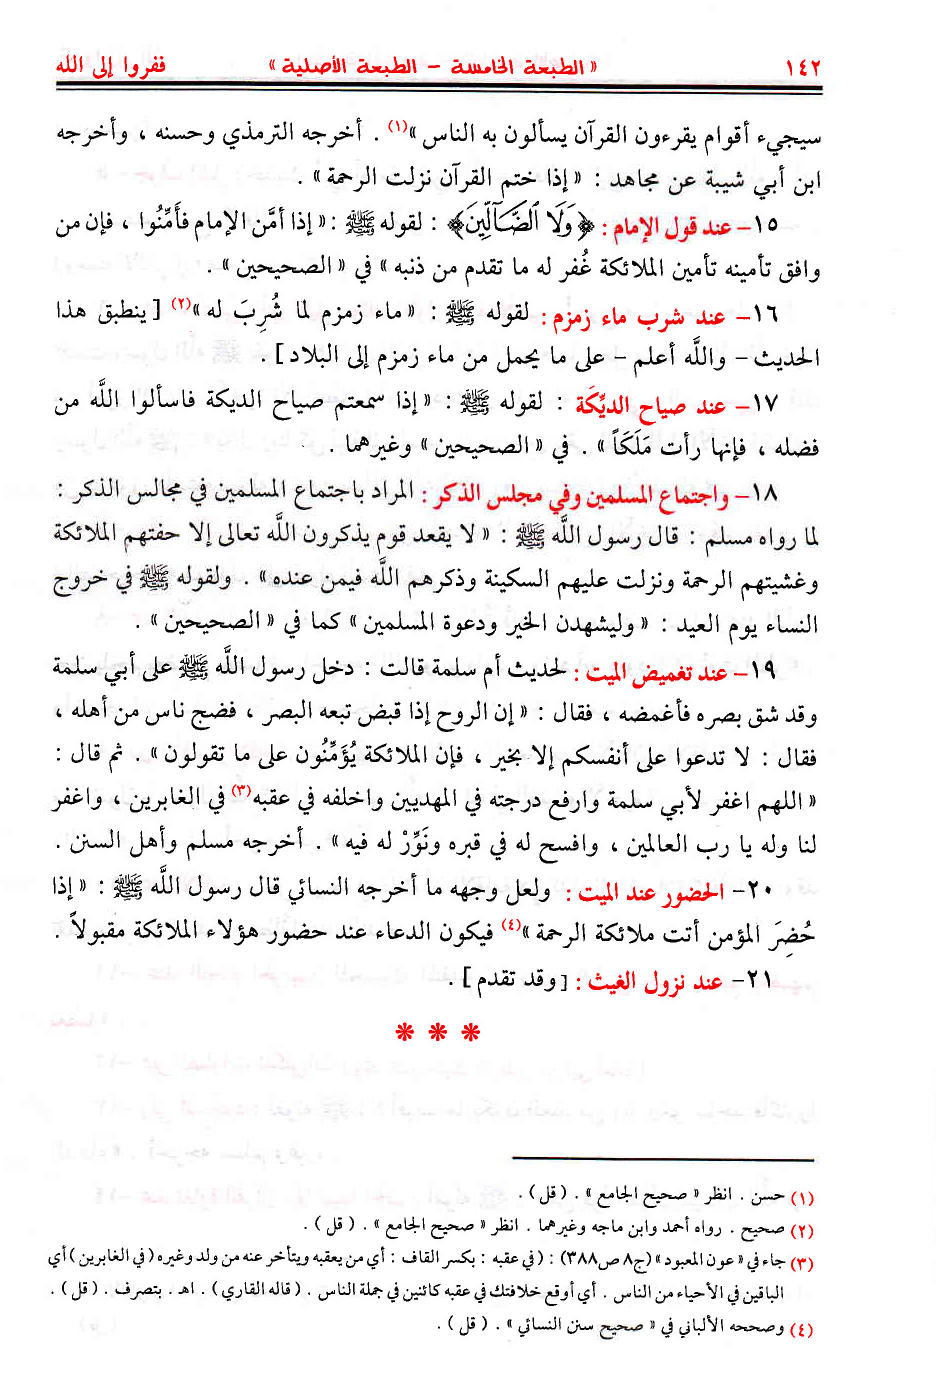 ١٤٢ « الطبعة الخامسة – الطبعة الأصلية » ففروا إلى الله
سيجيء أقوام يقرءون القرآن يسألون به الناس »(١) . أخرجه الترمذي وحسنه ، وأخرجه
ابن أبي شيبة عن مجاهد : « إذا ختم القرآن نزلت الرحمة » .
١٥– عند قول الإمام : ﴿ وَلَا ٱلضَّآلِّينَ ﴾ : لقوله ﷺ : « إذا أمَّن الإمام فأَمِّنُوا ، فإن من
وافق تأمينه تأمين الملائكة غُفر له ما تقدم من ذنبه » في « الصحيحين » .
١٦– عند شرب ماء زمزم : لقوله ﷺ : « ماء زمزم لما شُرِبَ له »(٢) [ ينطبق هذا
الحديث – والله أعلم – على ما يحمل من ماء زمزم إلى البلاد ] .
١٧– عند صياح الديِّكَة : لقوله ﷺ : « إذا سمعتم صياح الديكة فاسألوا الله من
فضله ، فإنها رأت مَلَكَاً » . في « الصحيحين » وغيرهما .
١٨– واجتماع المسلمين وفي مجلس الذكر : المراد باجتماع المسلمين في مجالس الذكر :
لما رواه مسلم : قال رسول الله ﷺ : « لا يقعد قوم يذكرون الله تعالى إلا حفتهم الملائكة
وغشيتهم الرحمة ونزلت عليهم السكينة وذكرهم الله فيمن عنده » . ولقوله ﷺ في خروج
النساء يوم العيد : « وليشهدن الخير ودعوة المسلمين » كما في « الصحيحين » .
١٩– عند تغميض الميت : لحديث أم سلمة قالت : دخل رسول الله ﷺ على أبي سلمة
وقد شق بصره فأغمضه ، فقال : « إن الروح إذا قبض تبعه البصر ، فضج ناس من أهله ،
فقال : لا تدعوا على أنفسكم إلا بخير ، فإن الملائكة يُؤَمِّنُون على ما تقولون » . ثم قال :
« اللهم اغفر لأبي سلمة وارفع درجته في المهديين واخلفه في عقبه(٣) في الغابرين ، واغفر
لنا وله يا رب العالمين ، وافسح له في قبره ونَوِّرْ له فيه » . أخرجه مسلم وأهل السنن .
٢٠– الحضور عند الميت : ولعل وجهه ما أخرجه النسائي قال رسول الله ﷺ : « إذا
حُضِرَ المؤمن أتت ملائكة الرحمة »(٤) فيكون الدعاء عند حضور هؤلاء الملائكة مقبولاً .
٢١– عند نزول الغيث : [ وقد تقدم ] .
* * *
(١) حسن . انظر « صحيح الجامع » . ( قل ) .
(٢) صحيح . رواه أحمد وابن ماجه وغيرهما . انظر « صحيح الجامع » . ( قل ) .
(٣) جاء في « عون المعبود » (ج٨ ص٣٨٨) : ( في عقبه : بكسر القاف : أي من يعقبه ويتأخر عنه من ولد وغيره ( في الغابرين ) أي
الباقين في الأحياء من الناس . أي أوقع خلافتك في عقبه كائنين في جملة الناس . ( قاله القاري ) . اهـ . بتصرف . ( قل ) .
(٤) وصححه الألباني في « صحيح سنن النسائي » . ( قل ) .